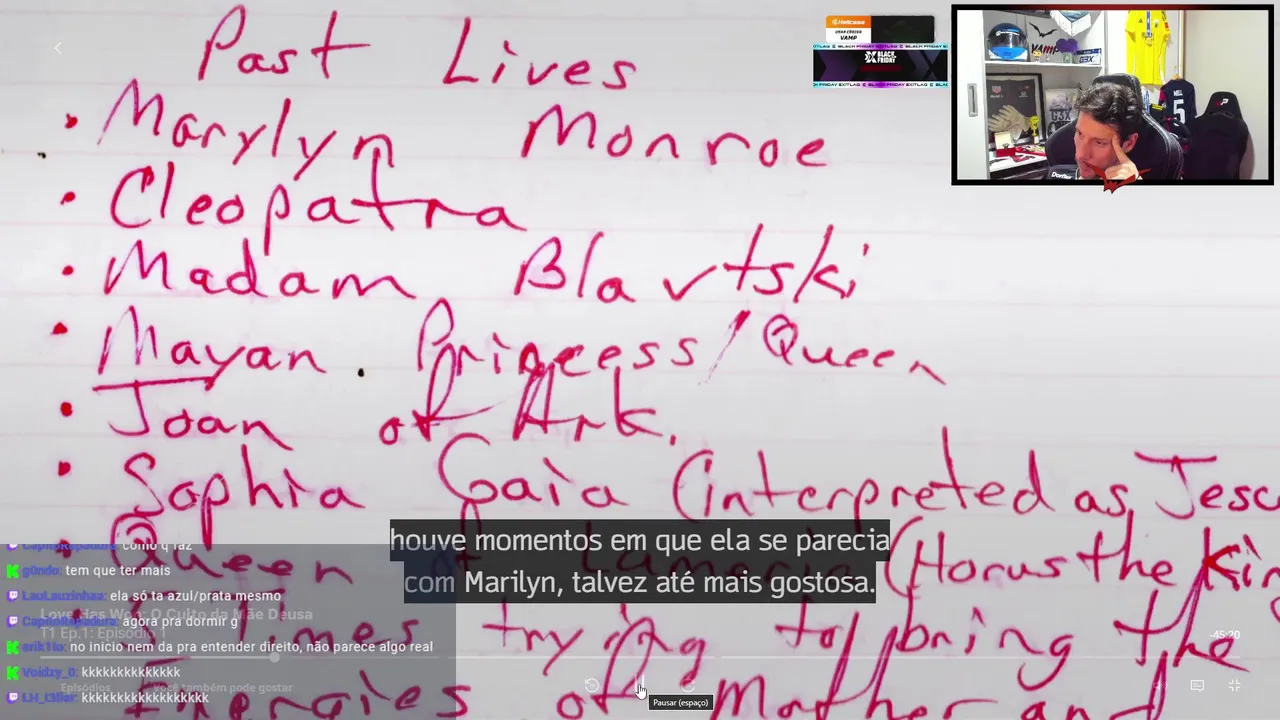 Past Lives
• Marylyn Monroe
• Cleopatra
• Madam Blavtski
• Mayan Princess/Queen
• Joan of Ark.
• Sophia Gaia (interpreted as Jesu
Queen of Lamoria (Horus the Kin
times trying to bring the
Energies of Mother and
houve momentos em que ela se parecia
com Marilyn, talvez até mais gostosa.
Hellcase
USAR CÓDIGO
VAMP
EXITLAG BLACK FRIDAY EXITLAG
BLACK
FRIDAY
BLACK FRIDAY EXITLAG
VAMP
G3X
MEL
5
CapitolRapadura: como q faz
g0ndo: tem que ter mais
LauLauzinhaa: ela só ta azul/prata mesmo
Love Has Won: O Culto da Mãe Deusa
CapitolRapadura: agora pra dormir g
T1 Ep.1: Episódio 1
erik1to: no inicio nem da pra entender direito, não parece algo real
Voidzy_0: kkkkkkkkkkkkk
Episódios Você também pode gostar
LH_t3ller: kkkkkkkkkkkkkkkkkk
-45:20
Pausar (espaço)